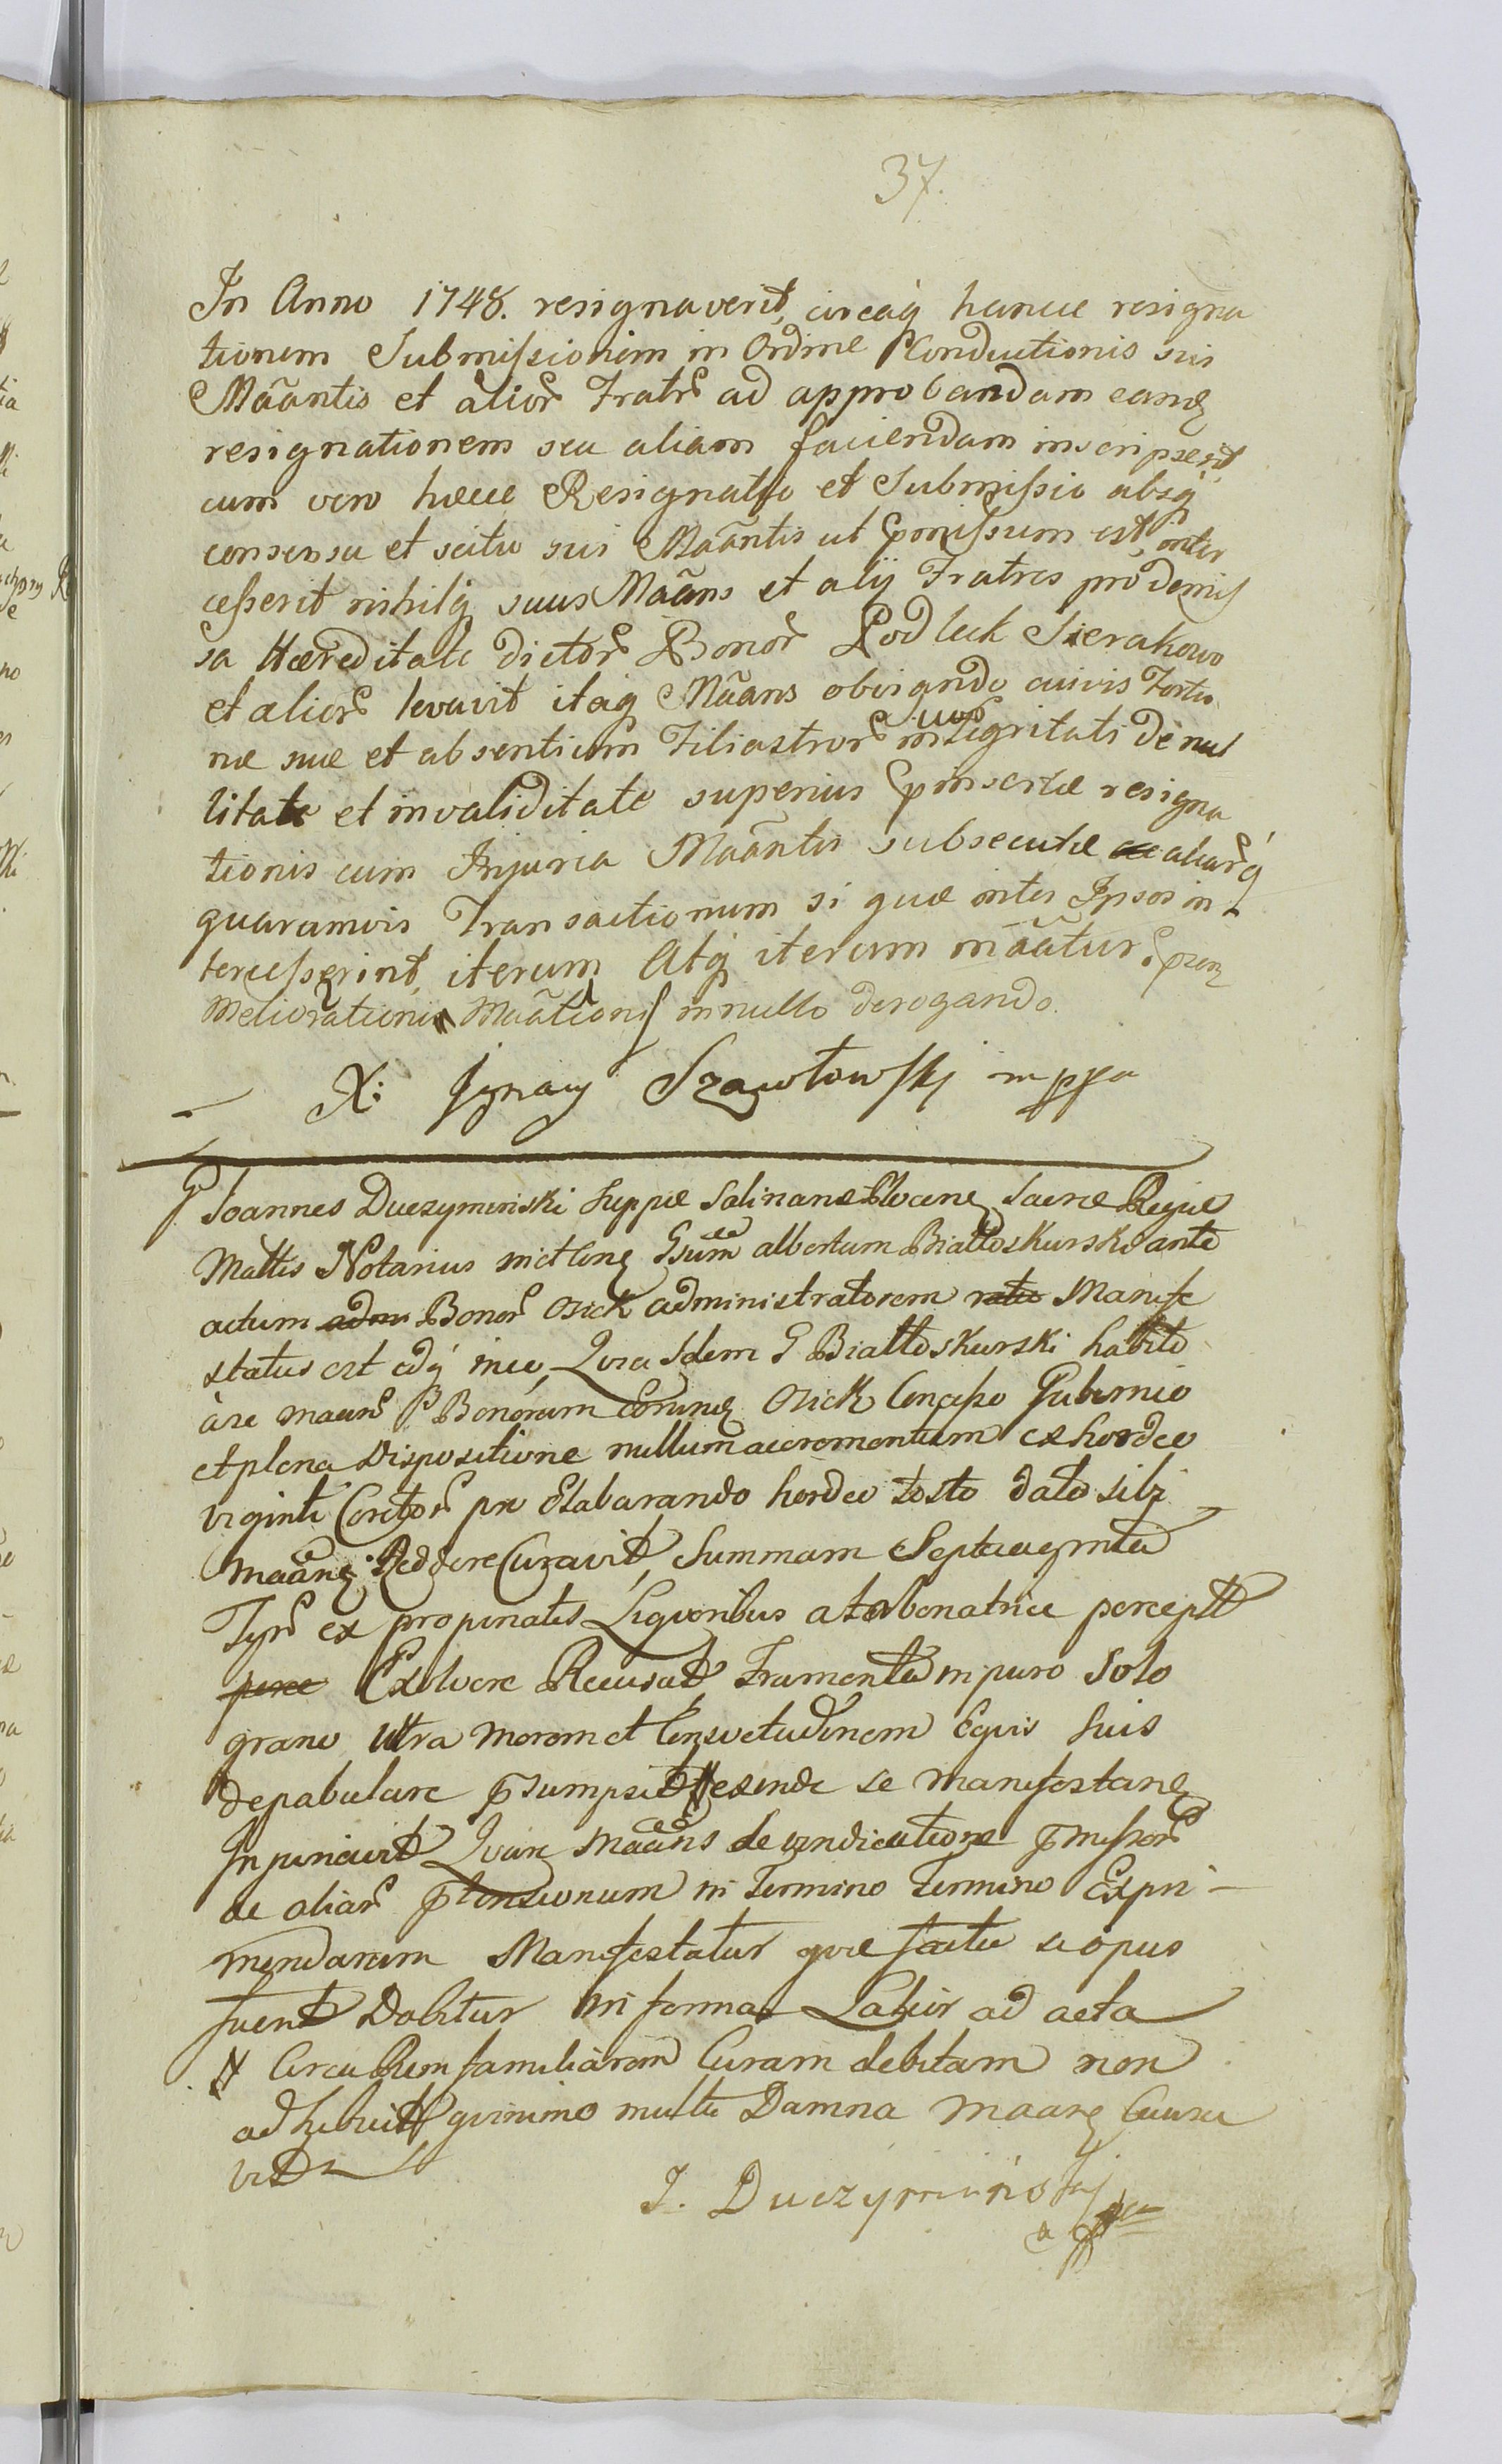 37.
In Anno 1748. resignaverit, circaq hancce resigna
tionem Submissionem in Ordine Conductionis sui
Mãantis et alior Fratr ad approbandam eandẽ
resignationem seu aliam faciendam inscripserit
cum vero hæcce Resignatio et Submissio absq
consensu et scitu sui Mãantis ut pmissum est, inter
cesserit nihilq suus Mãans et alij Fratres pro demis
sa Hæreditate dictor Bonor Podlek Sierakowo
et alior levavit itaq Mãans obvigndo cuivis Fortu
næ suæ et absentium Filiastror suor integritati de nul
litate et invaliditate superius pinsertæ resigna
tionis cum Injuria Mãantis subsecutæ aliarq
quarumvis Transactionum si quæ inter Ipsos in
tercesserint, iterum Atq iterum mãatur.
Meliorationi Mãationis in nullo derogando.
X: Ignacy Szawłowskj mppa
G Joannes Duczyminski Suppæ Salinaræ Plocen Sacræ Regiæ
Mattis Notarius in et Con Gsum albertum Białłoskurski ante
actum Bonor Osiek administratorem Manife
status est idq ineo, Quia Idem G Białłoskurski habito
àse maãn Bonorum Eorund Osiek Concesso Gubernio
et plena Dispositione nullum accrementum ex hordeo
viginti Coretor pro Elaborando hordeo tosto dato sibi
maãn: Reddere Curavit, Summam Septuaginta
Tynf ex propinatis Liquoribus a tabernatrice percept
Exolvere Recusat, Frumenta in puro Solo
grano Ultra morem et Consvetudinem Equis Suis
depabulare psumpsit exinde se manifestan
Injuriavit Quare maãns de vindicatione pmissor
ac aliar ptensionum in Termino Termino Expri-
mendarum Manifestatur quæ facta si opus
fuerit Dabitur in forma Latior ad acta
Circa Rem familiarem Curam debitam non
adhibuit quinimo multa Damna maan Causa
vit
J. Duczyminskj